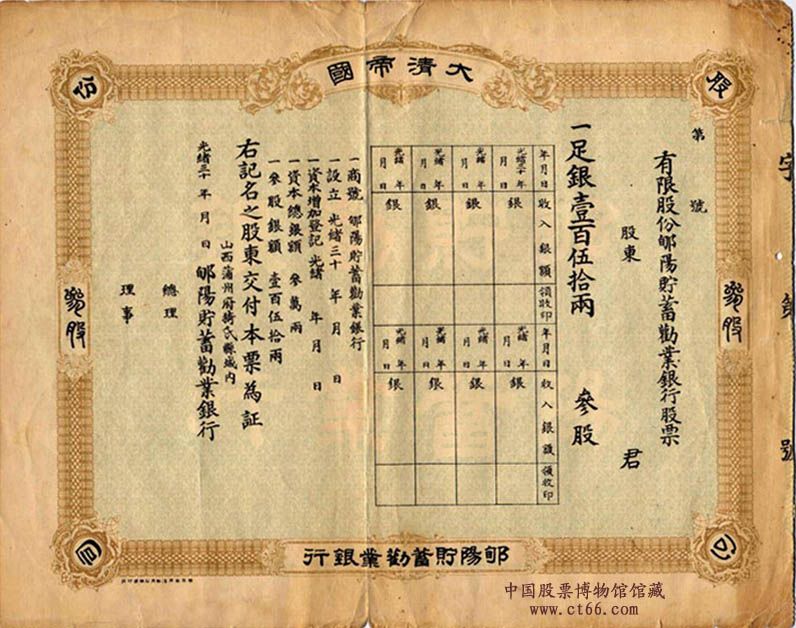 大清帝國
股份公司
參股
參股
字 號
第 號
有限股份郇陽貯蓄勸業銀行股票
股東 君
一足銀壹百伍拾兩 參股
年月日 收入銀額 領收印 年月日 收入銀額 領收印
光緒三十年 月 日 銀 光緒 年 月 日 銀
光緒 年 月 日 銀 光緒 年 月 日 銀
光緒 年 月 日 銀 光緒 年 月 日 銀
光緒 年 月 日 銀 光緒 年 月 日 銀
一商號 郇陽貯蓄勸業銀行
一設立 光緒三十 年 月 日
一資本增加登記 光緒 年 月 日
一資本總銀額 參萬兩
一參股銀額 壹百伍拾兩
右記名之股東交付本票為証
山西蒲州府猗氏縣城内
光緒三十 年 月 日 郇陽貯蓄勸業銀行
總理
理事
郇陽貯蓄勸業銀行
中国股票博物馆馆藏
www.ct66.com